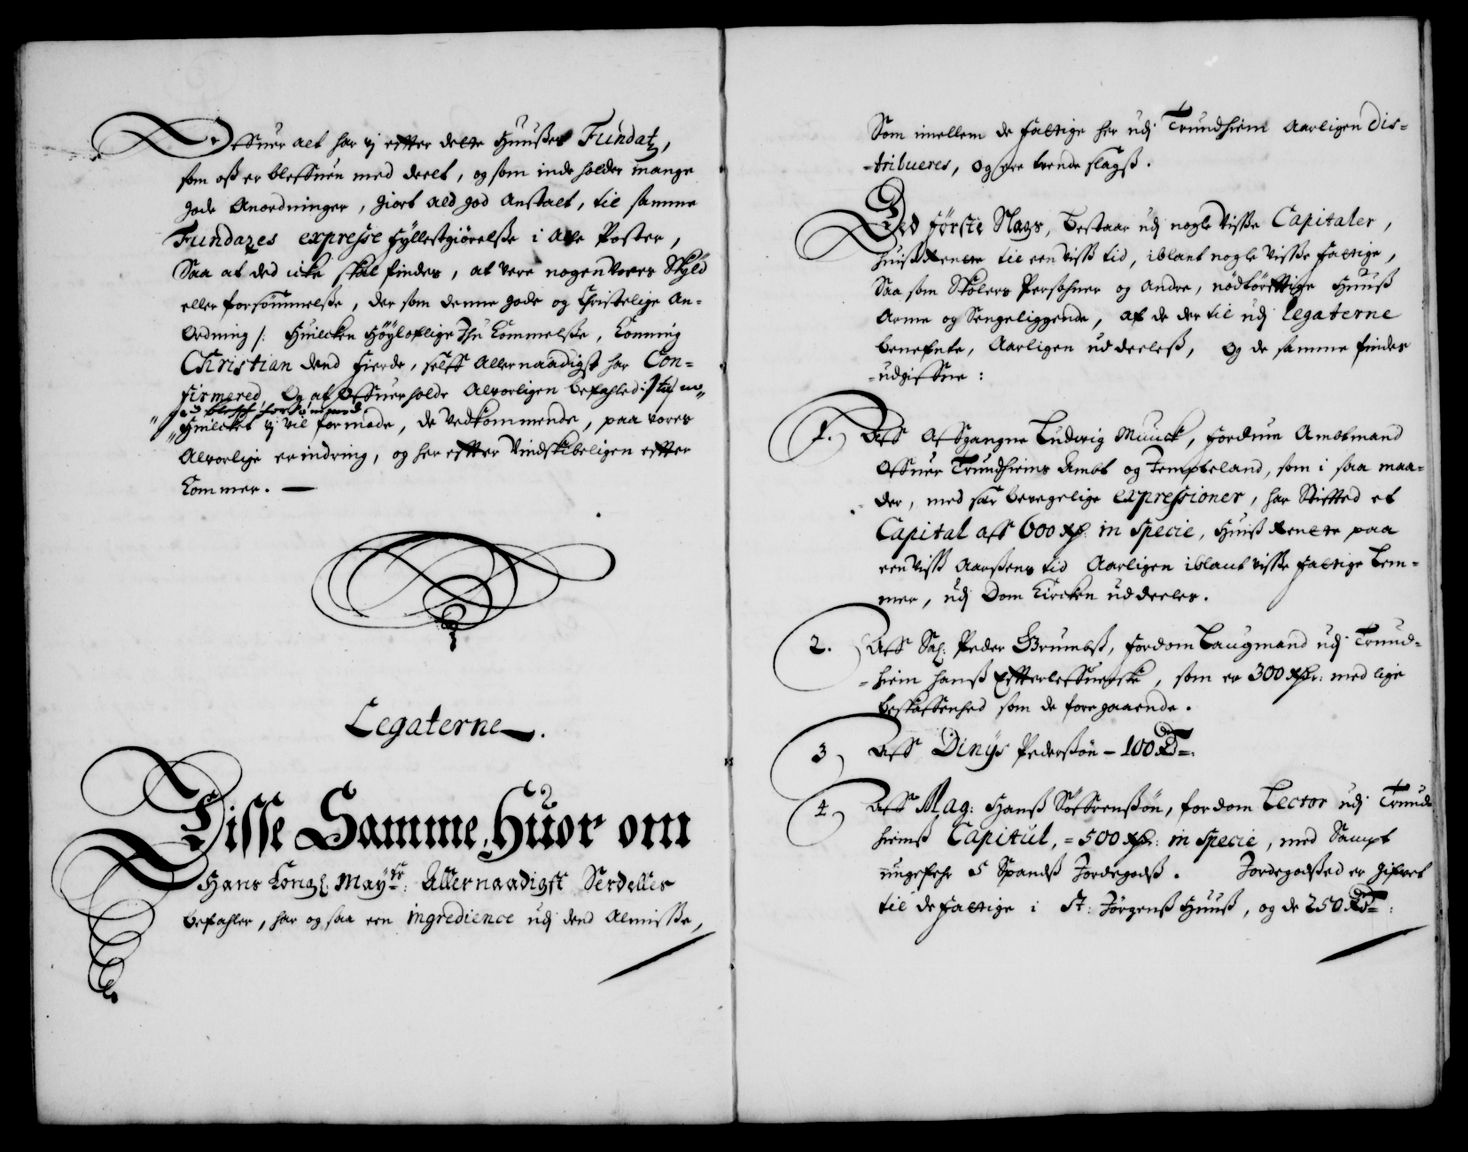 Offuer alt har vj effter dette Huuses Fundatz,
som oß er bleffuen med deelt, og som inde holder mange
gode Anordninger, giort ald god Anstalt, til samme
Fundazes expresse fyllestgiörelße i alle Poster,
Saa at ded icke skal findes, at vere nogen vores Skyld
eller forsömmelße, der som denne gode og Christelige An-
Ordning /: Huilcken Höylofflige Ihu Kommelße, Konning
Christian dend fierde, self Allernaadigst har Con-
firmered Og at offuerholde Alvorligen befahled
Huilcket vj vil formode, de vedkommende, paa vores
Alvorlige erindring, og her effter vindskibeligen effter
kommer. —
Legaterne.
Disse Samme, Huor om
Hans Kongl: Mayst: Allernaadigst Serdelles
befahler, har og saa een ingredience udj dend Almisße,
Som imellem de fattige her udj Trundhiem Aarligen dis-
-tribueres, og ere trende slags.
Ded förste Slags, bestaar udj nogle visße Capitaler,
huis Rente til een viss tid, iblant nogle visße fattige,
Saa som Skolens Persohner og andre, nödtörfftige Huuß
Arme og Sengeliggende, af de der til udj legaterne
benefnte, Aarligen uddeeles, og de samme findes
-udgiffne:
1. Aff Affgangne Ludvig Munck, fordum Ambtmand
offuer Trundhiems Ambt og Jempteland, som i saa maa-
der, med saer bevegelige expressioner, har Stiffted et
Capital aff 600 Rd. in specie, Huis Rente paa
een viss Aarßens tid Aarligen iblant visße fattige Lem-
mer, udj Dom Kircken uddeeles.
2. Aff Sal: Peder Grumbß, fordom Laugmand udj Trund-
-hiem hanß Effterleffuerske, som er 300 Rdr: med lige
beskaffenhed som de foregaaende.
3 Aff Dinys Pederßön – 100 Rd:
4. Aff Mag: Hanß Söffrenßön, fordom Lector udj Trund
hiemß Capitul, = 500 Rdr: in specie, med Sampt
ungefehr 5 Spandß Jordegodß. Jordegodßed er gifvet
til de fattige i St: Jörgens Huuß, og de 250 Rd: